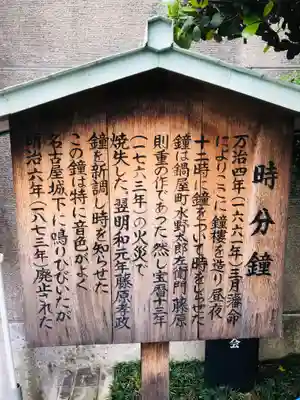 時分鐘
万治四年(一六六一年)三月藩命
によりここに鐘楼を造り昼夜
十二時に鐘をついて時をしらせた
鐘は鍋屋町水野太郎左衛門藤原
則重の作であった 然し宝暦十三年
(一七六三年)の火災で
焼失した、翌明和元年藤原孝政
鐘を新調し時を知らせた
この鐘は特に音色がよく
名古屋城下に鳴りひびいたが
明治六年(一八七三年)廃止された
会